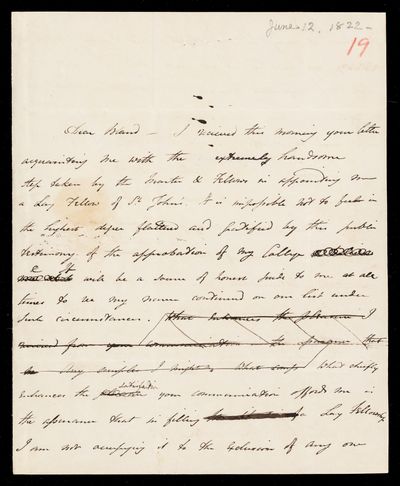 June 12. 1822 -
19
Dear Brand - I received this morning your letter
acquainting me with the extremely handsome
step taken by the Master & Fellows in appointing me
a Lay Fellow of St Johns. It is impossible not to feel in
the highest degree flattered and gratified by this public
testimony of the approbation of my College
It will be a source of honest pride to me at all
times to see my name continued on one list under
such circumstances. What enhances the pleasure I
received from your communication is the
What chiefly
satisfaction
enhances the your communication affords me is
the assurance that in filling a Lay Fellowship
I am not occupying it to the exclusion of any one